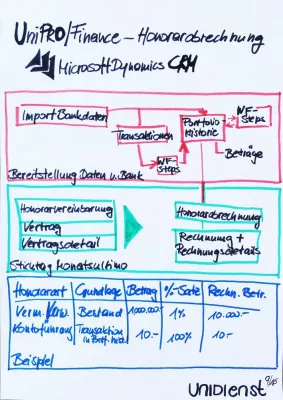 UniPRO/Finance – Honorarabrechnung
Microsoft Dynamics CRM
Import Bankdaten
Transaktionen
WF-
steps
Portfolio
Historie
WF-
steps
Beträge
Bereitstellung Daten v. Bank
Honorarvereinbarung
Vertrag
Vertragsdetail
Honorarabrechnung
Rechnung +
Rechnungsdetails
Stichtag Monatsultimo
Honorarart Grundlage Betrag %-Satz Rechn. Betr.
Verm. Verw. Bestand 1000.000.- 1% 10.000.-
Kontoführung Transaktion 10.- 100% 10.-
Beispiel
UNIDIENST 9/15